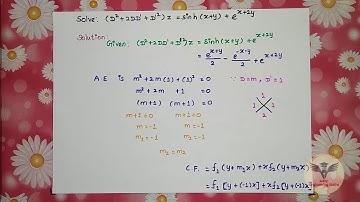 Solve: (D²+2DD'+D'²)z = sinh(x+y) + e^{x+2y}
Solution:
Given: (D²+2DD'+D'²)z = sinh(x+y) + e^{x+2y}
= e^{x+y}/2 - e^{-x-y}/2 + e^{x+2y}
A.E is m²+2m(1)+(1)² = 0 ∵ D=m, D'=1
m²+2m +1 =0
(m+1) (m+1) =0
m+1=0 m+1=0
m=-1 m=-1
m₁=-1 m₂=-1
m₁=m₂
1 1
1 1
2
C.F. = f₁(y+m₁x)+xf₂(y+m₂x)
= f₁[y+(-1)x]+xf₂[y+(-1)x]